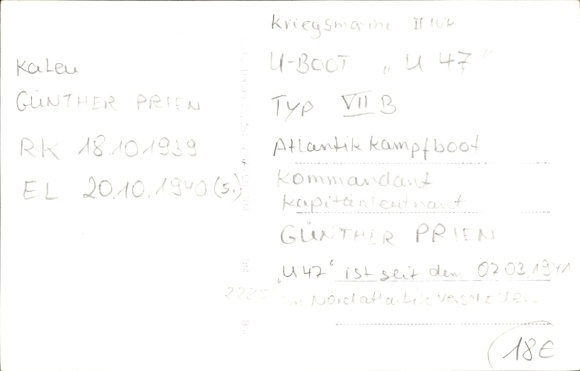 KaLeu
GÜNTHER PRIEN
RK 18.10.1939
EL 20.10.1940 (5.)
Kriegsmarine II WK
U-BOOT „U 47"
TYP VII B
Atlantikkampfboot
Kommandant
Kapitänleutnant
GÜNTHER PRIEN
„U 47" ist seit dem 07.03.1941
im Nordatlantik verschollen
18€